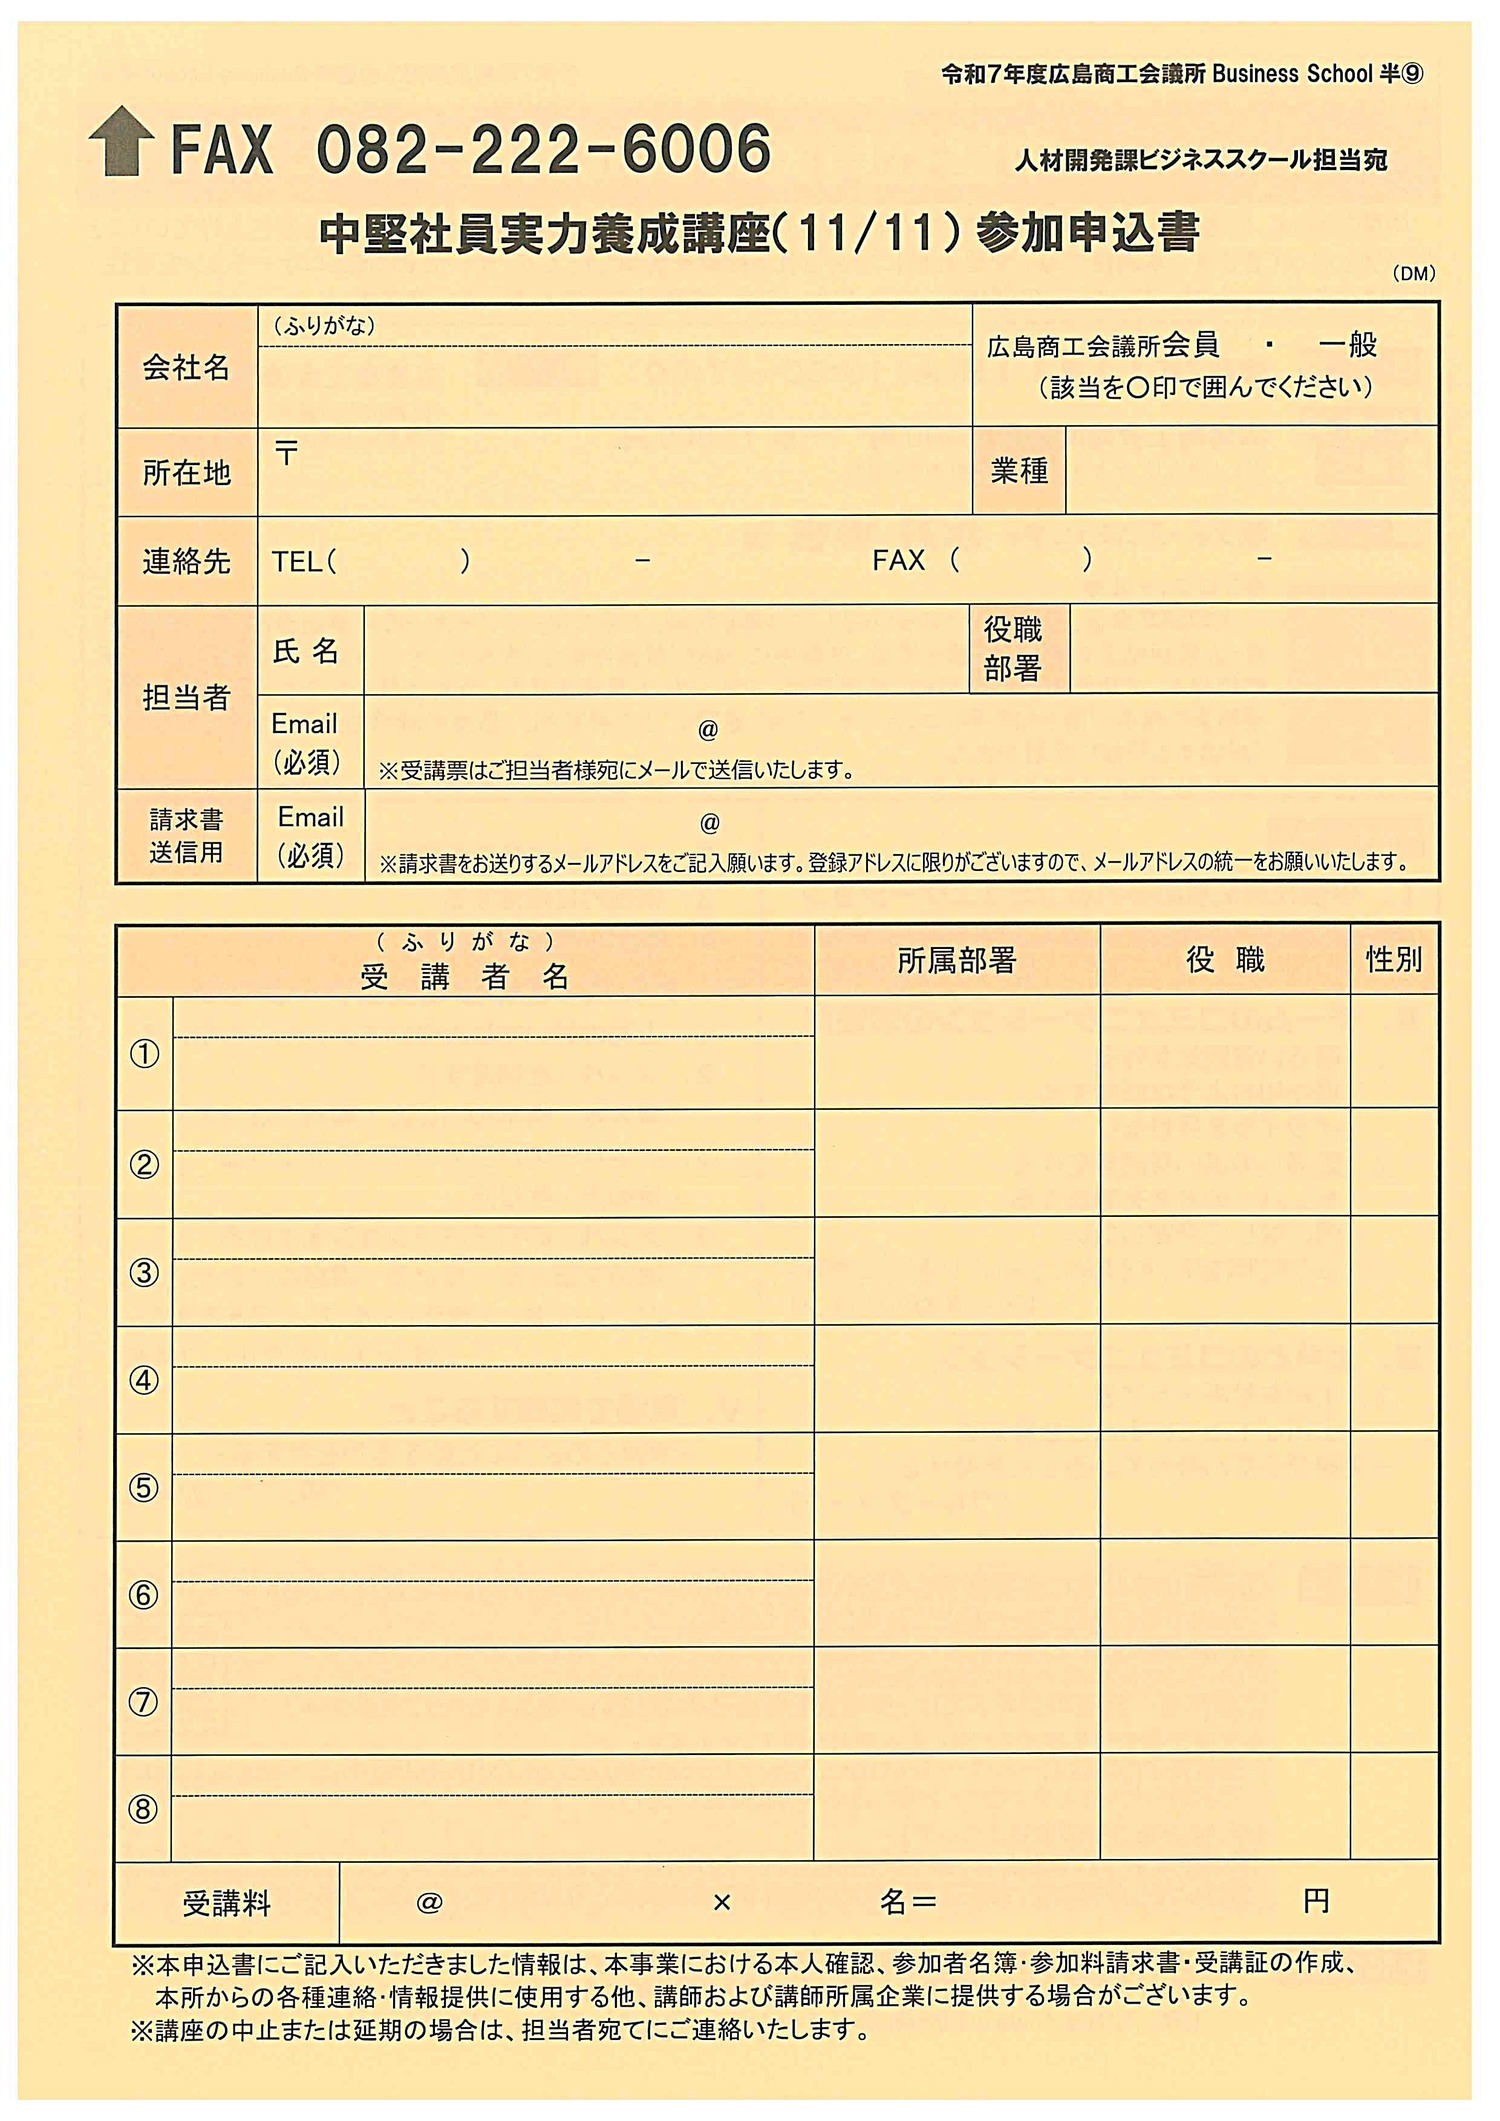 令和7年度広島商工会議所 Business School 半⑨
FAX 082-222-6006
人材開発課ビジネススクール担当宛
中堅社員実力養成講座(11/11)参加申込書
(DM)
会社名
(ふりがな)
広島商工会議所会員 ・ 一般
(該当を〇印で囲んでください)
所在地
〒
業種
連絡先
TEL( ) － FAX ( ) －
担当者
氏 名
役職
部署
Email
(必須)
@
※受講票はご担当者様宛にメールで送信いたします。
請求書
送信用
Email
(必須)
@
※請求書をお送りするメールアドレスをご記入願います。登録アドレスに限りがございますので、メールアドレスの統一をお願いいたします。
(ふりがな)
受 講 者 名
所属部署
役 職
性別
①
②
③
④
⑤
⑥
⑦
⑧
受講料
@ × 名＝ 円
※本申込書にご記入いただきました情報は、本事業における本人確認、参加者名簿・参加料請求書・受講証の作成、
本所からの各種連絡・情報提供に使用する他、講師および講師所属企業に提供する場合がございます。
※講座の中止または延期の場合は、担当者宛てにご連絡いたします。